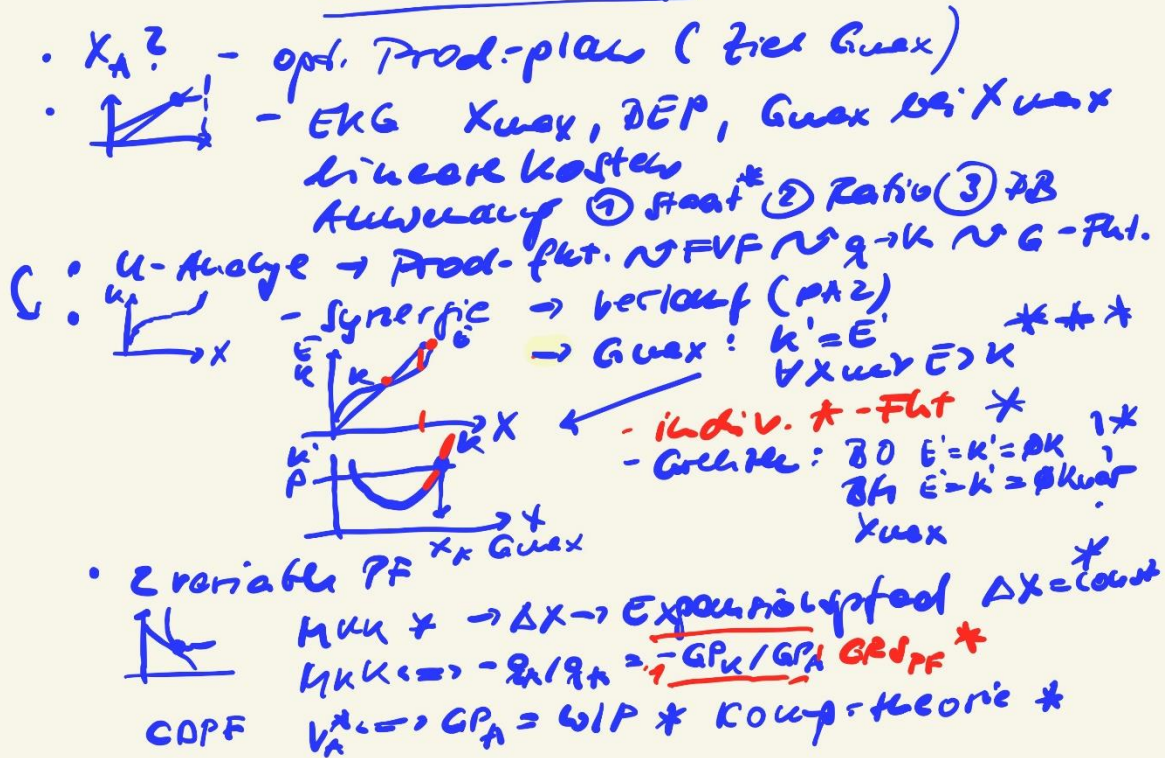 • X_A? - opt. Prod.-plan (Ziel Gmax)
• - EKG Xmax, BEP, Gmax bei Xmax
lineare Kosten
Anwendung ① Staat* ② Ratio ③ DB
• U-Analyse → Prod-fkt. FVF q→K G-Fkt.
• K X - Synergie → Verlauf (PA2)
→ Gmax: K'=E' ***
∀ Xmax E>K
E K K E X
- indiv. *-Fkt *
- Grenzen: BO E'=K'=ØK 1*
BM E'=K'=ØKvar
Xmax
K' P K' X
X_A Gmax
• 2 variable PF
MKK * → ΔX → Expansionspfad ΔX=const *
MKK <=> -q_A/q_A = -GP_K/GP_A GRdS_PF *
CDPF V_A* <=> GP_A = w/P * Komp-theorie *